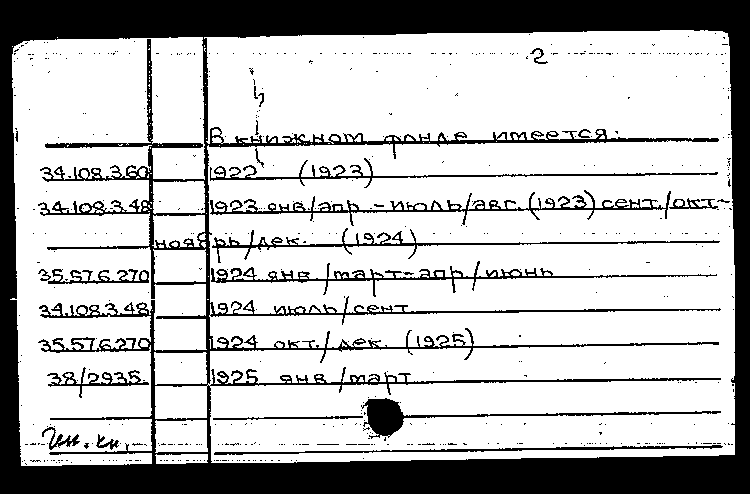 2
В книжном фонде имеется:
34.108.3.60 1922 (1923)
34.108.3.48 1923 янв/апр - июль/авг. (1923) сент./окт-
ноябрь/дек. (1924)
35.57.6.270 1924 янв/март-апр/июнь
34.108.3.48 1924 июль/сент.
35.57.6.270 1924 окт./дек. (1925)
38/2935. 1925 янв/март
Ген. кн.